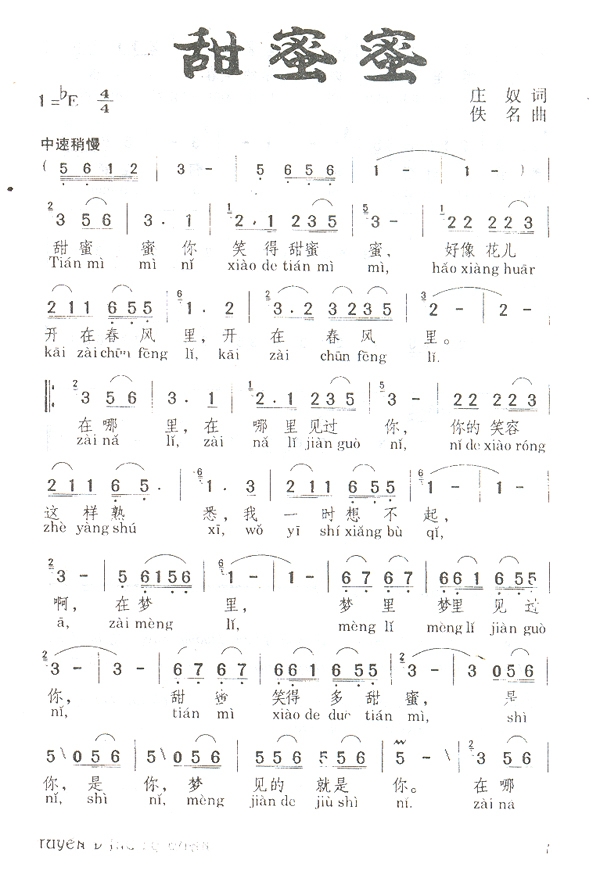 甜蜜蜜
1=♭E 4/4
庄奴词
佚名曲
中速稍慢
( 5 6 1 2 | 3 - | 5 6 5 6 | 1 - | 1 - )
3 5 6 | 3 . 1 | 2 . 1 2 3 5 | 3 - | 2 2 2 2 3
甜蜜 蜜你 笑得甜蜜 蜜, 好像花儿
Tián mì mì nǐ xiào de tián mì mì, hǎo xiàng huār
2 1 1 6 5 5 | 1 . 2 | 3 . 2 3 2 3 5 | 2 - | 2 -
开在春风里,开在春风里。
kāi zài chūn fēng lǐ, kāi zài chūn fēng lǐ.
3 5 6 | 3 . 1 | 2 . 1 2 3 5 | 3 - | 2 2 2 2 3
在哪里,在哪里见过你, 你的笑容
zài nǎ lǐ, zài nǎ lǐ jiàn guò nǐ, nǐ de xiào róng
2 1 1 6 5 . | 1 . 3 | 2 1 1 6 5 5 | 1 - | 1 -
这样熟悉,我一时想不起,
zhè yàng shú xī, wǒ yī shí xiǎng bù qǐ,
3 - | 5 6 1 5 6 | 1 - | 1 - | 6 7 6 7 | 6 6 1 6 5 5
啊, 在梦里, 梦里梦里见过
ā, zài mèng lǐ, mèng lǐ mèng lǐ jiàn guò
3 - | 3 - | 6 7 6 7 | 6 6 1 6 5 5 | 3 - | 3 0 5 6
你, 甜蜜笑得多甜蜜, 是
nǐ, tián mì xiào de duō tián mì, shì
5 \ 0 5 6 | 5 \ 0 5 6 | 5 5 6 5 5 6 | 5 - | 5 - | 3 5 6
你,是你,梦见的就是你。在哪
nǐ, shì nǐ, mèng jiàn de jiù shì nǐ. zài nǎ